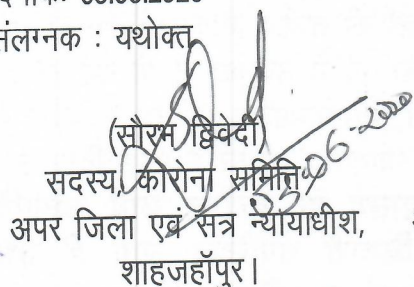 संलग्नक : यथोक्त
(सौरभ द्विवेदी)
सदस्य, कोरोना समिति,
अपर जिला एवं सत्र न्यायाधीश,
शाहजहॉपुर।